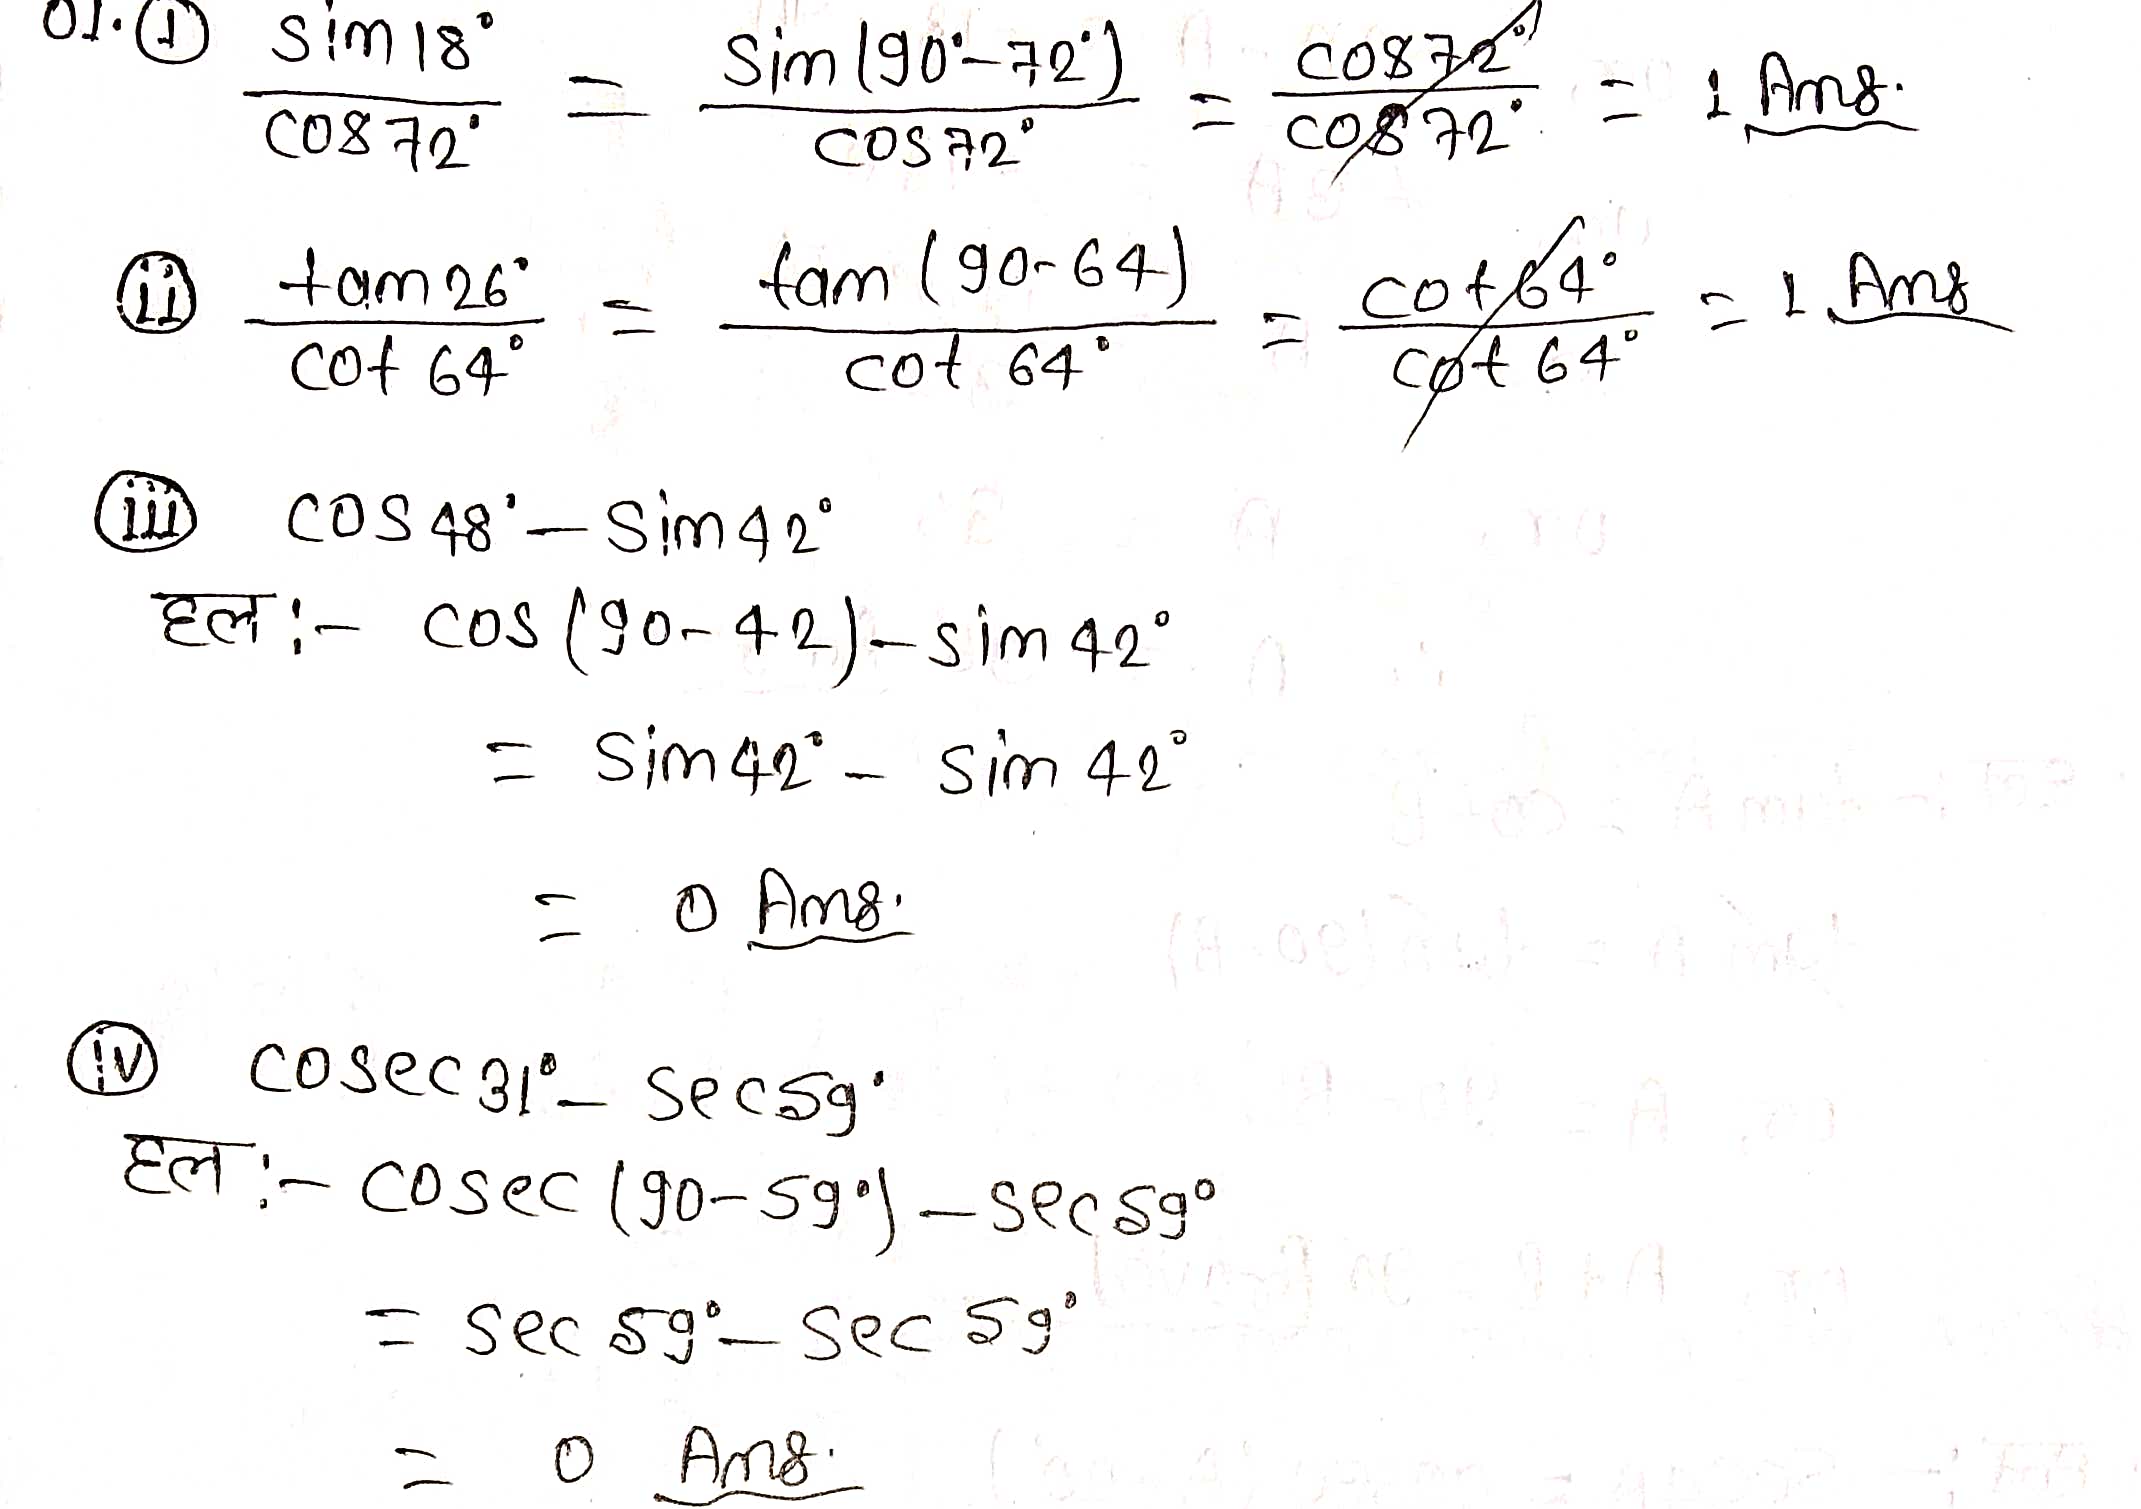 01. (i) sin 18° / cos 72° = sin (90° - 72°) / cos 72° = cos 72° / cos 72° = 1 Ans.
(ii) tan 26° / cot 64° = tan (90 - 64) / cot 64° = cot 64° / cot 64° = 1 Ans
(iii) cos 48° - sin 42°
हल :- cos (90 - 42) - sin 42°
= sin 42° - sin 42°
= 0 Ans.
(iv) cosec 31° - sec 59°
हल :- cosec (90 - 59°) - sec 59°
= sec 59° - sec 59°
= 0 Ans.